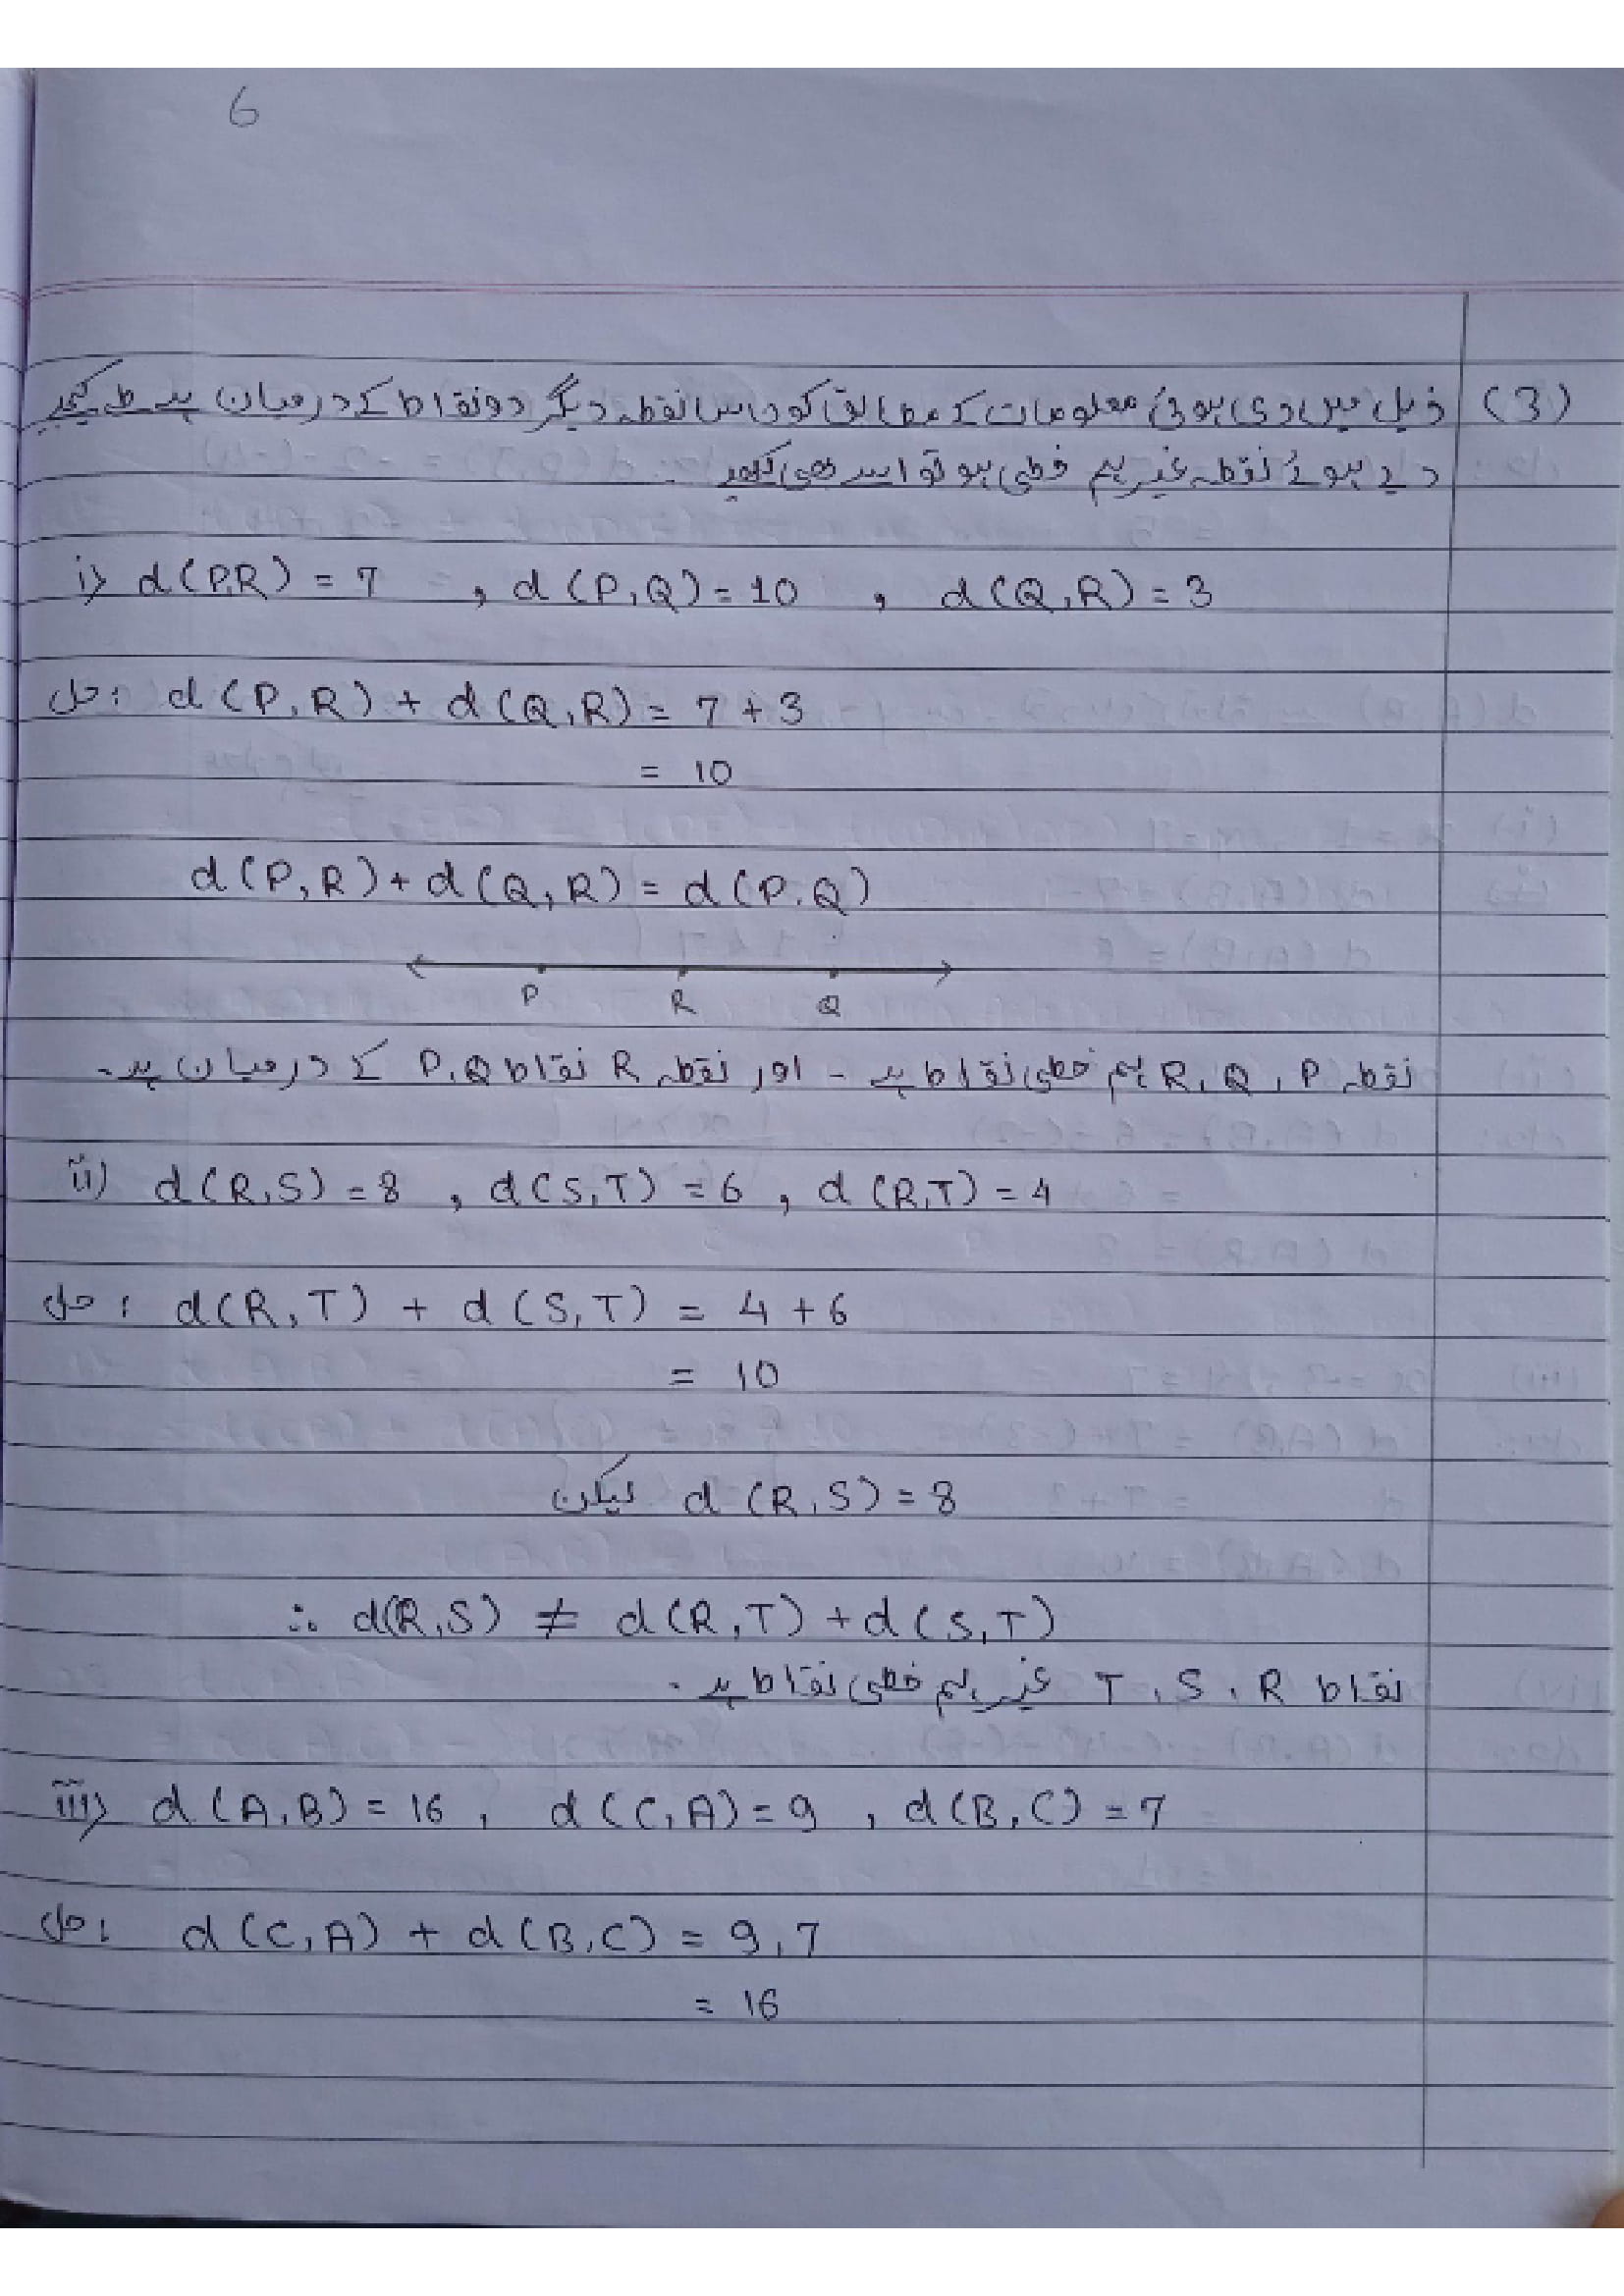 6
(3) ذیل میں دی ہوئی معلومات کے مطابق کون سا نقطہ دیگر دو نقاط کے درمیان ہے طے کیجیے
دیے ہوئے نقطہ غیر ہم خطی ہو تو اسے بھی لکھیے .
i) d(P,R) = 7 , d(P,Q) = 10 , d(Q,R) = 3
حل: d(P,R) + d(Q,R) = 7 + 3
= 10
d(P,R) + d(Q,R) = d(P,Q)
P R Q
نقطہ R, Q, P ہم خطی نقاط ہے - اور نقطہ R نقاط P,Q کے درمیان ہے -
ii) d(R,S) = 8 , d(S,T) = 6 , d(R,T) = 4
حل: d(R,T) + d(S,T) = 4 + 6
= 10
لیکن d(R,S) = 8
∴ d(R,S) ≠ d(R,T) + d(S,T)
نقاط T, S, R غیر ہم خطی نقاط ہے .
iii) d(A,B) = 16 , d(C,A) = 9 , d(B,C) = 7
حل: d(C,A) + d(B,C) = 9,7
= 16